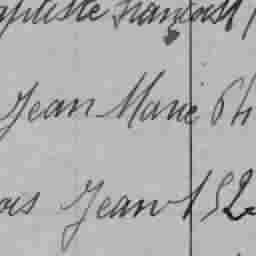 aptiste François
Jean Marie 64
ois Jean 52